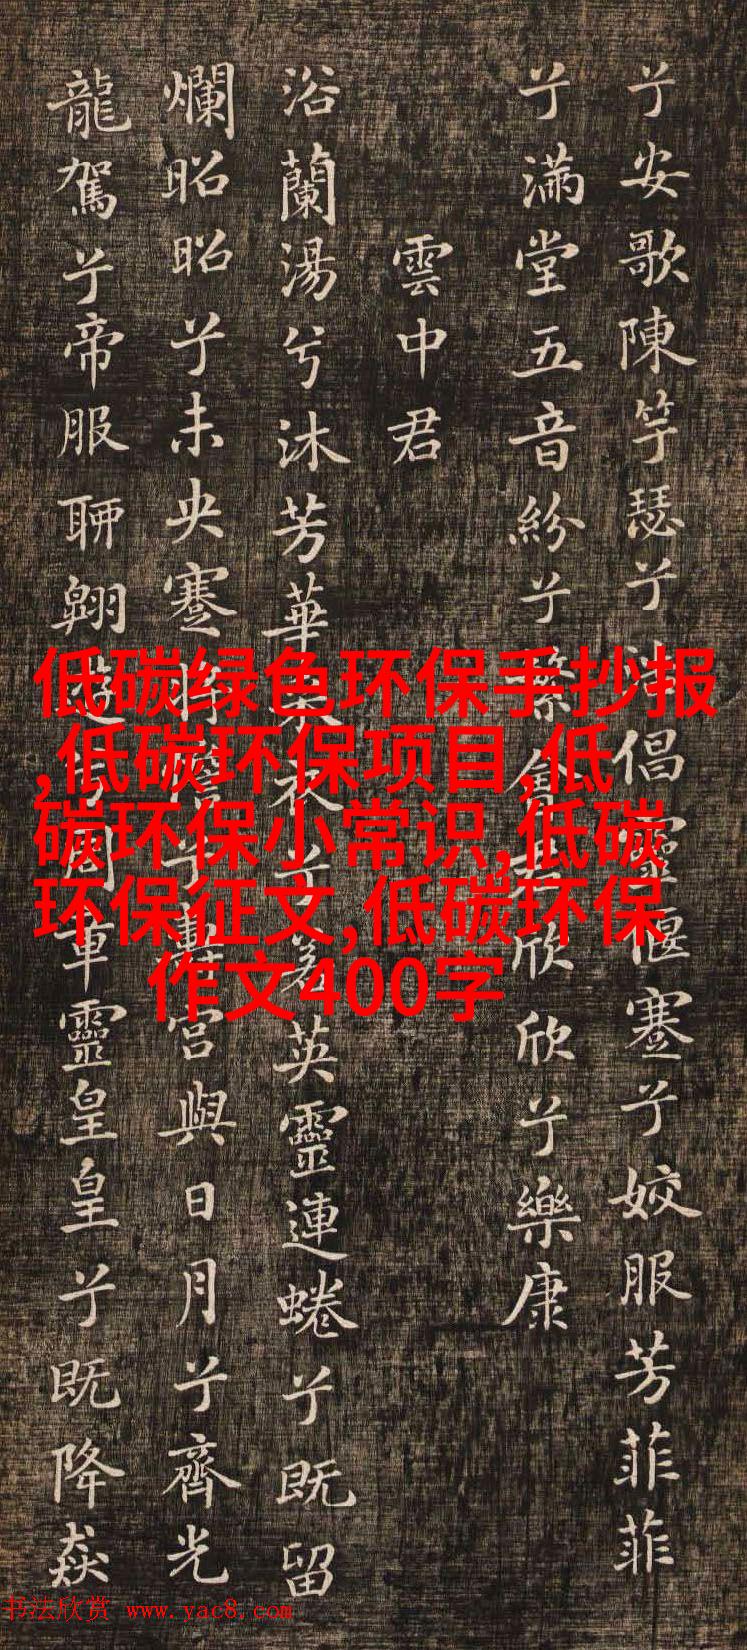 兮安歌陳竽瑟兮浩倡靈偃蹇兮姣服芳菲菲
兮滿堂五音紛兮繁會君欣欣兮樂康
雲中君
浴蘭湯兮沐芳華采衣兮若英靈連蜷兮既留
爛昭昭兮未央蹇將憺兮壽宮與日月兮齊光
龍駕兮帝服聊翱遊兮周章靈皇皇兮既降猋
低碳绿色环保手抄报
,低碳环保项目,低
碳环保小常识,低碳
环保征文,低碳环保
作文400字
书法欣赏 www.yac8.com